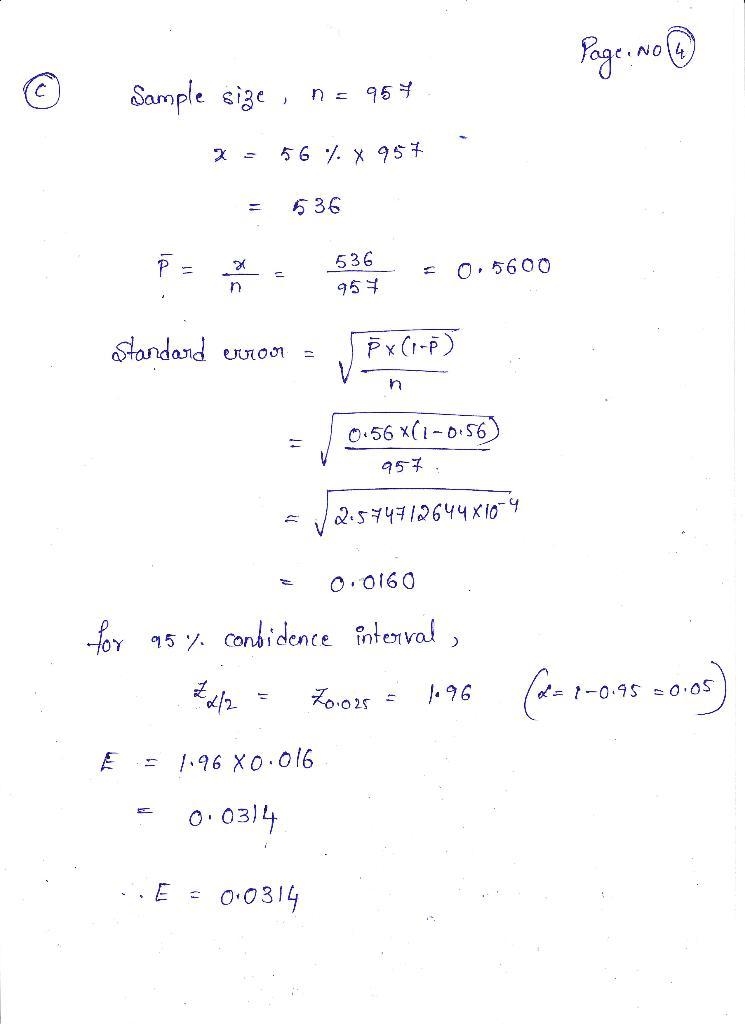 Page. No 4
C Sample size, n = 957
x = 56 % x 957
= 536
P̄ = x/n = 536/957 = 0.5600
Standard error = √(P̄ x (1-P̄)/n)
= √(0.56 x (1-0.56)/957)
= √(2.574712644 x 10^-4)
= 0.0160
for 95 % confidence interval,
Zα/2 = Z0.025 = 1.96 (α = 1-0.95 = 0.05)
E = 1.96 X 0.016
= 0.0314
∴ E = 0.0314